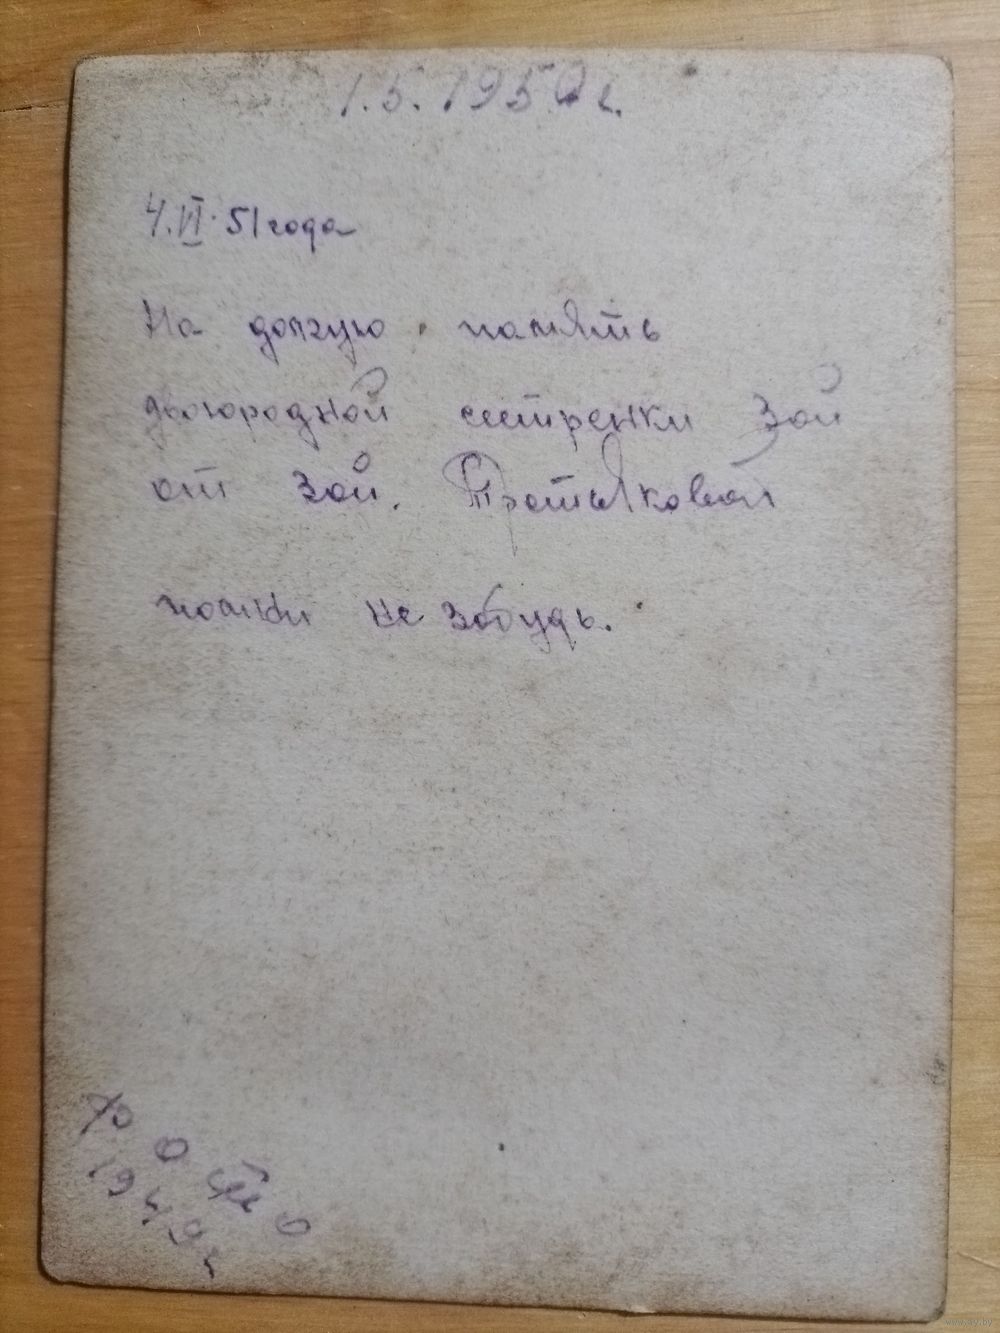 1.5.1950 г.
4.VI.51 года
На долгую память
двоюродной сестренки Зой
от Зой. Третьяковой
помни не забудь.
Фото
1949 г
www.ay.by